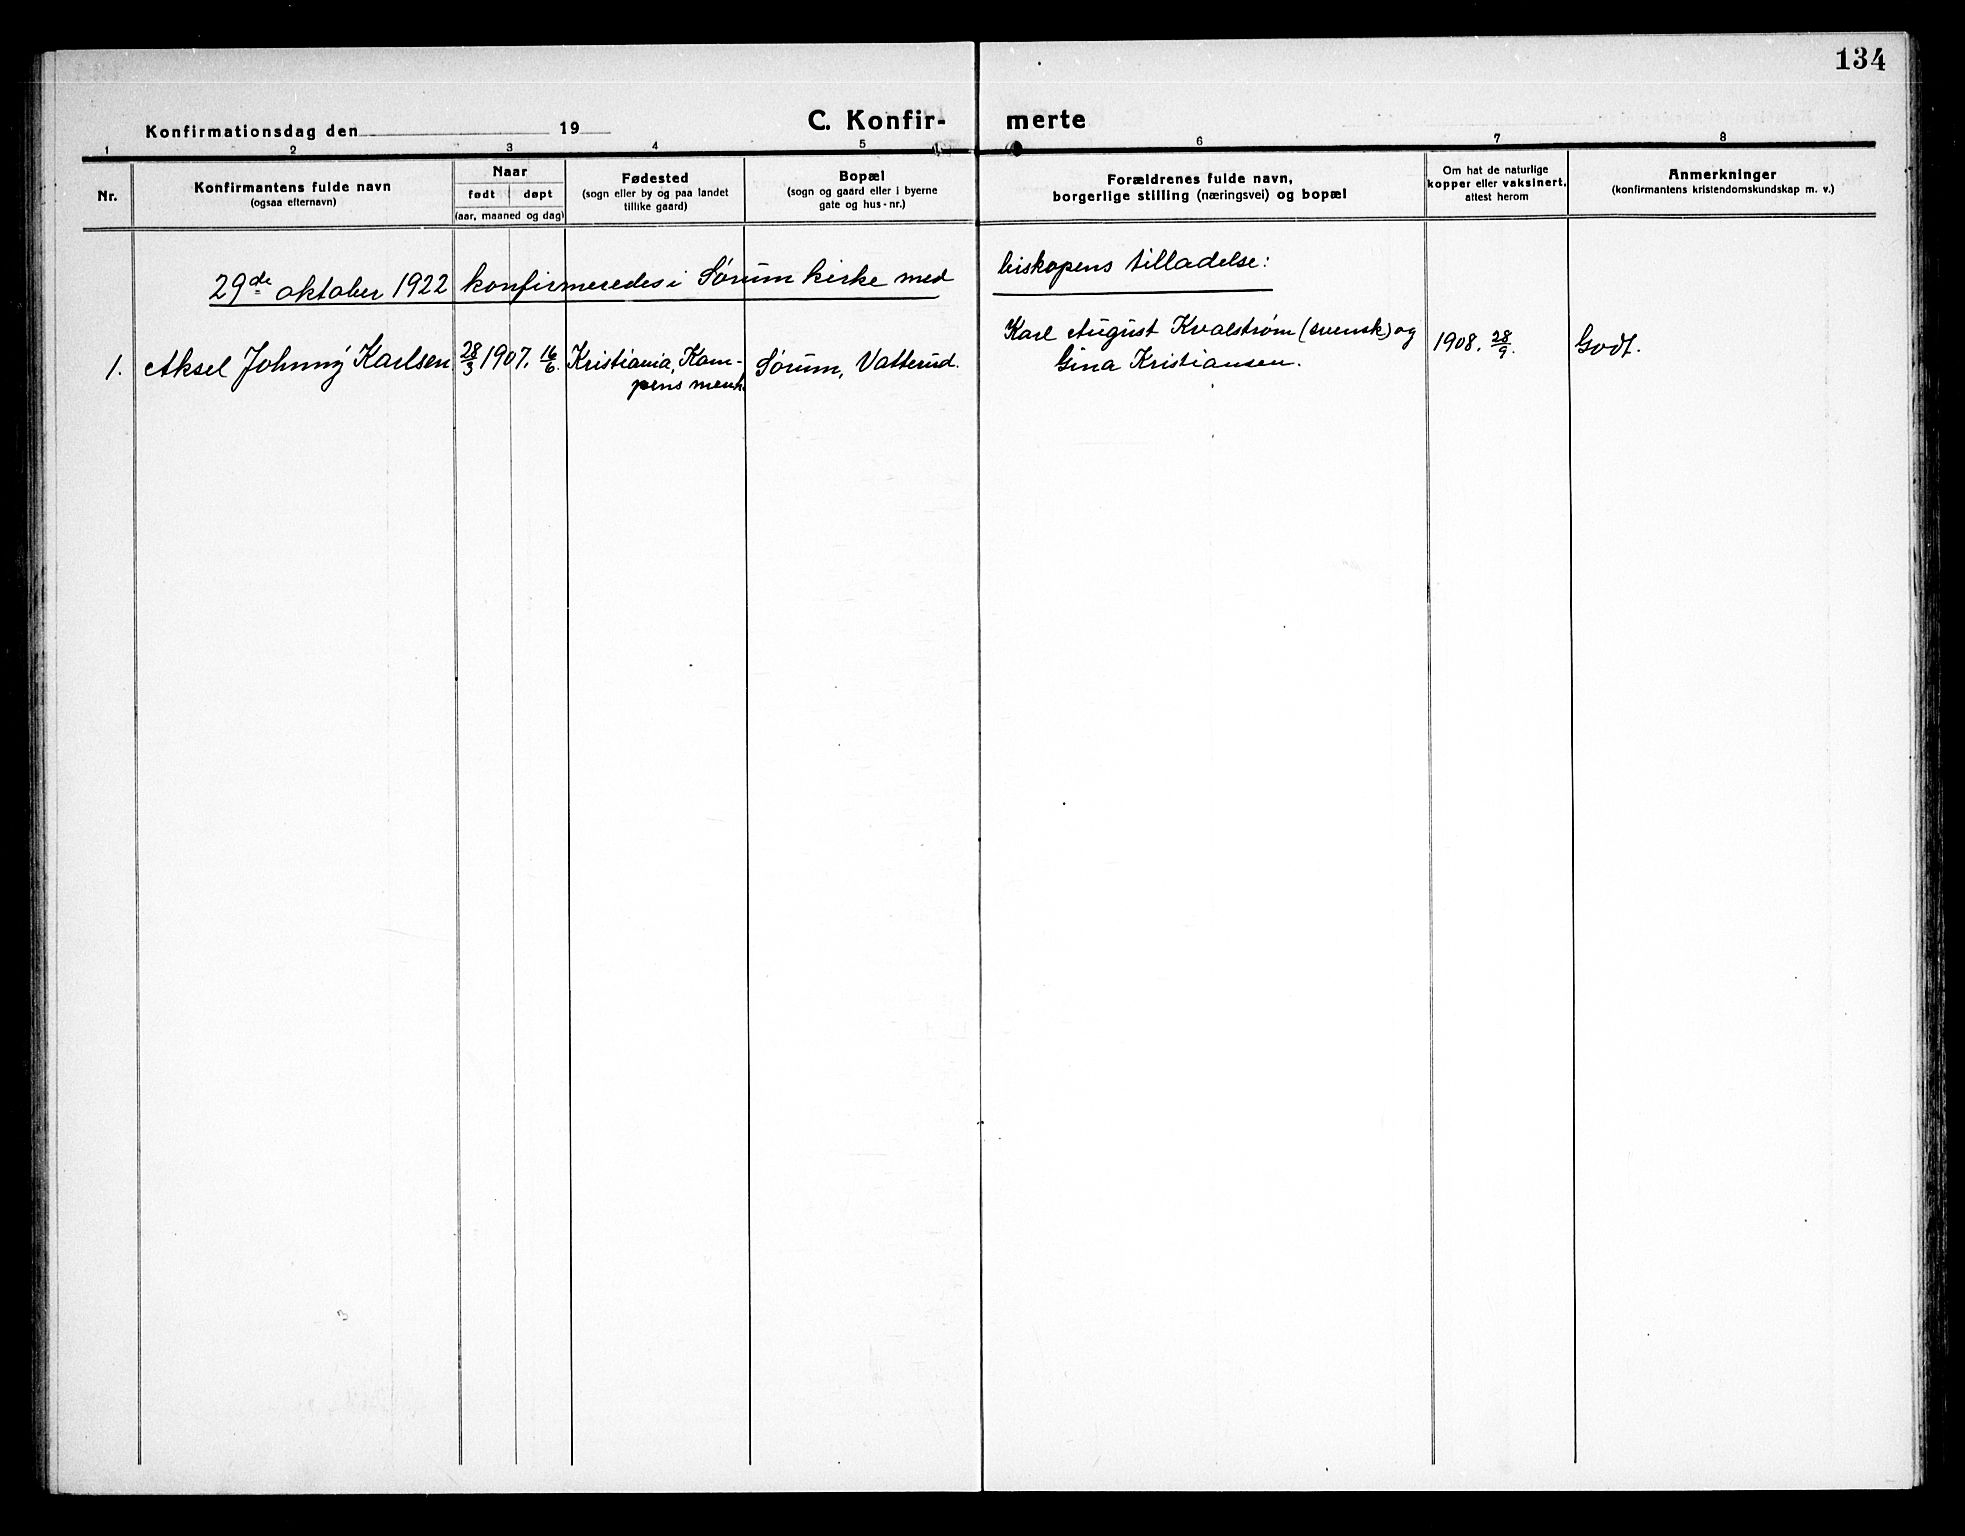 134
Konfirmationsdag den 19
C. Konfir- merte
1 2 3 4 5 6 7 8
Nr.
Konfirmantens fulde navn
(ogsaa efternavn)
Naar
født døpt
(aar, maaned og dag)
Fødested
(sogn eller by og paa landet
tillike gaard)
Bopæl
(sogn og gaard eller i byerne
gate og hus-nr.)
Forældrenes fulde navn,
borgerlige stilling (næringsvei) og bopæl
Om hat de naturlige
kopper eller vaksinert,
attest herom
Anmerkninger
(konfirmantens kristendomskundskap m. v.)
29de oktober 1922 konfirmeredes i Sørum kirke med biskopens tilladelse:
1. Aksel Johnny Karlsen 28/3 1907. 16/6. Kristiania, Kam-
pens menh.
Sørum, Vatterud.
Karl August Kvalstrøm (svensk) og
Gina Kristiansen.
1908. 28/9.
Godt.